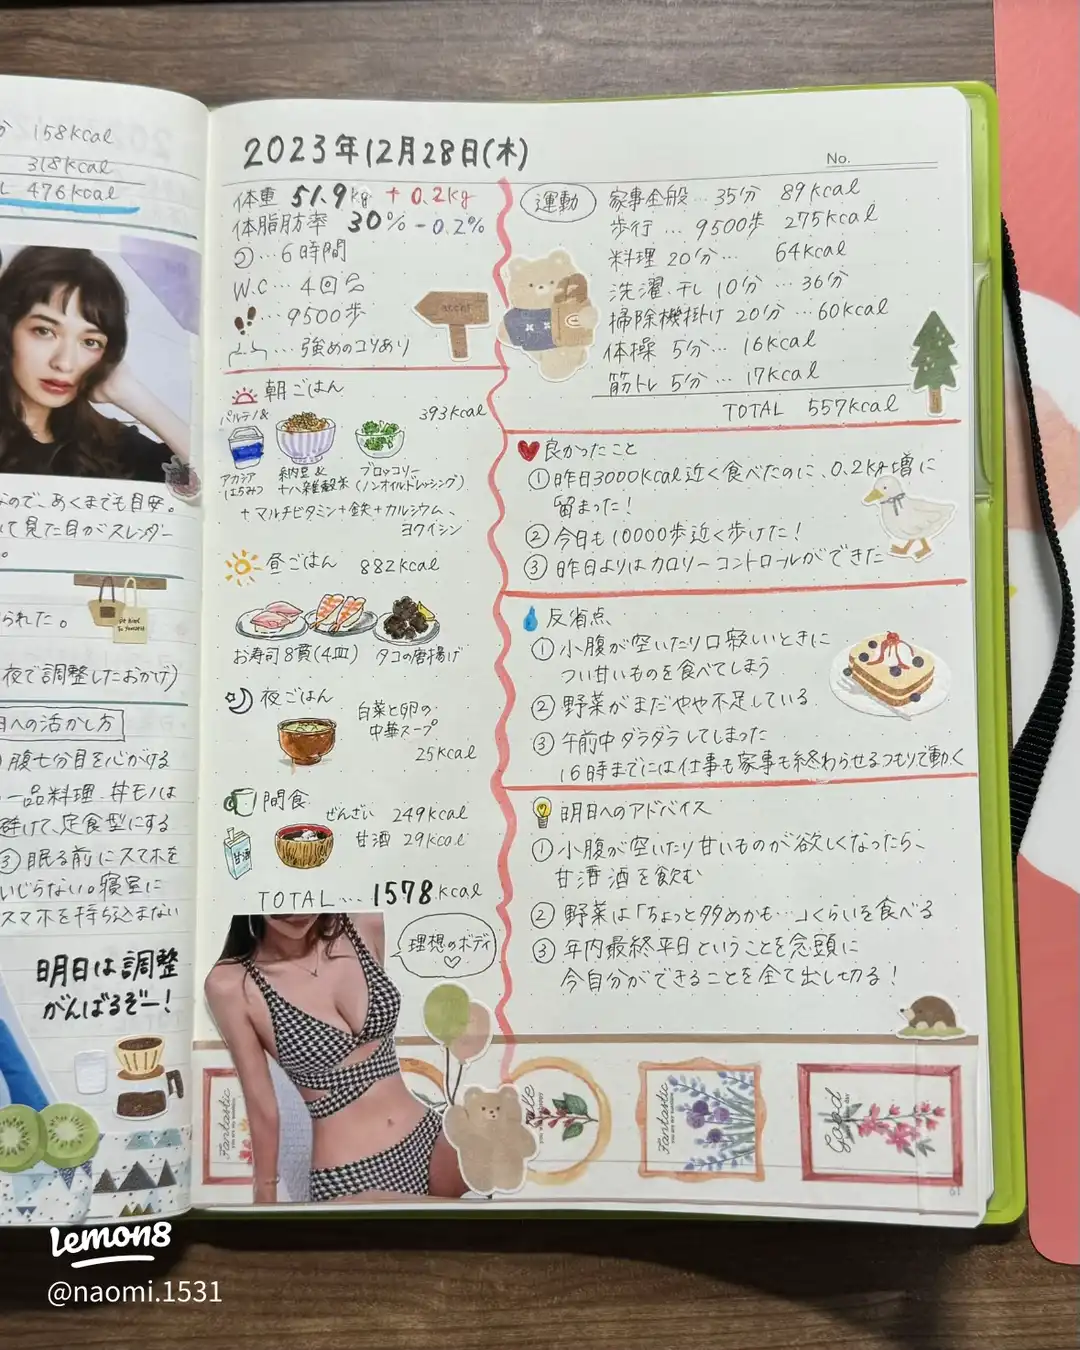 158kcal
318kcal
476kcal
なので、あくまでも目安。
て見た目がスレンダー
。
られた。
夜で調整したおかげ)
日への活かし方
腹七分目を心がける
一品料理、丼モノは
避けて、定食型にする
③ 眠る前にスマホを
いじらない。寝室に
スマホを持ち込まない
明日は調整
がんばるぞー!
2023年12月28日(木)
No.
体重 51.9kg +0.2kg
体脂肪率 30% -0.2%
…6時間
W.C… 4回
…9500歩
… 強めのコリあり
朝ごはん
393kcal
パルテノ&
アカシア
はちみつ
納豆&
十八雑穀米
ブロッコリー
(ノンオイルドレッシング)
+マルチビタミン+鉄+カルシウム、
ヨクイシン
昼ごはん 882kcal
お寿司8貫(4皿) タコの唐揚げ
夜ごはん
白菜と卵の
中華スープ
25kcal
間食
ぜんざい 249kcal
甘酒 29kcal
甘酒
TOTAL… 1578kcal
理想のボディ
運動
家事全般… 35分 89kcal
歩行… 9500歩 275kcal
料理 20分… 64kcal
洗濯、干し 10分 … 36分
掃除機掛け 20分… 60kcal
体操 5分… 16kcal
筋トレ 5分… 17kcal
TOTAL 557kcal
良かったこと
① 昨日3000kcal近く食べたのに、0.2kg増に
留まった!
② 今日も10000歩近く歩けた!
③ 昨日よりはカロリーコントロールができた
反省点
① 小腹が空いたり口寂しいときに
つい甘いものを食べてしまう
② 野菜がまだやや不足している
③ 午前中ダラダラしてしまった
16時までには仕事も家事も終わらせるつもりで動く
明日へのアドバイス
① 小腹が空いたり甘いものが欲しくなったら、
甘酒酒を飲む
② 野菜は「ちょっと多めかも…」くらいを食べる
③ 年内最終平日ということを念頭に
今自分ができることを全て出し切る!
Fantastic
Fantastic
Good
61
Lemon8
@naomi.1531